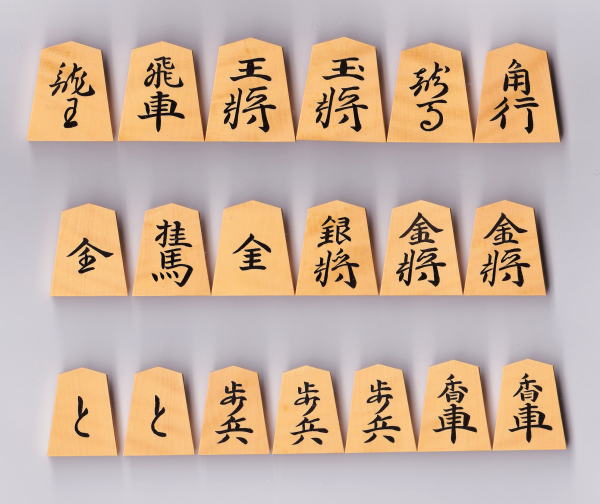 龍王 飛車 王将 玉将 龍馬 角行
全 桂馬 全 銀将 金将 金将
と と 歩兵 歩兵 歩兵 香車 香車